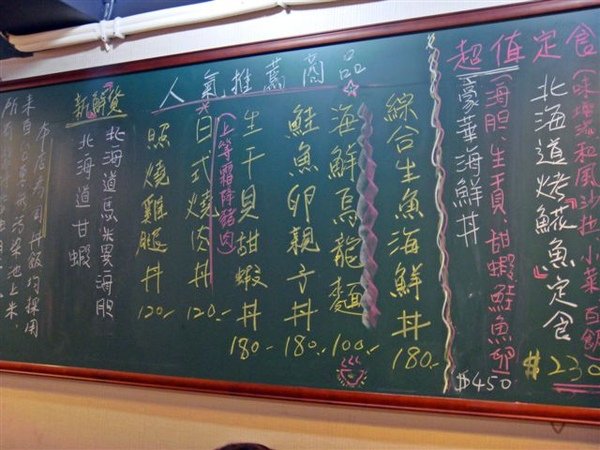 超值定食
(味噌湯和風沙拉、小菜、白飯)
北海道烤魚定食
$230
豪華海鮮丼
(海胆、生干貝、甜蝦鮭魚卵
$450
人氣推薦商品
綜合生魚海鮮丼 180.-
海鮮烏龍麵 100.-
鮭魚卵親子丼 180.-
生干貝甜蝦丼 180-
日式燒肉丼 120.-
(上等霜降豬肉)
照燒雞腿丼 120-
新鮮貨
北海道馬糞海胆
北海道甘蝦
本店壽司丼飯均採用
來自台東池上米